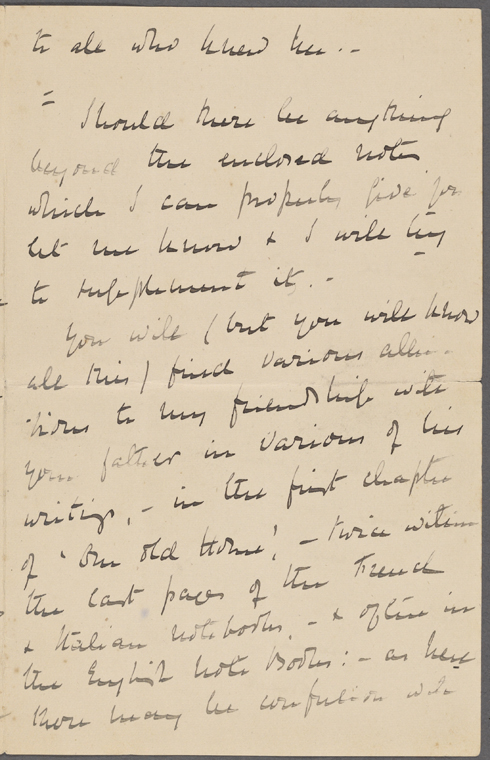 to all who knew him. -
=
Should there be anything
beyond the enclosed notes
which I can properly give you
let me know & I will try
to supplement it. -
You will (but you will know
all this) find various allu-
tions to my friendship with
your father in various of his
writings, - in the first chapter
of 'Our old Home', - twice within
the last pages of the French
& Italian notebooks, - & often in
the English Note Books: - as here
there may be confusion with